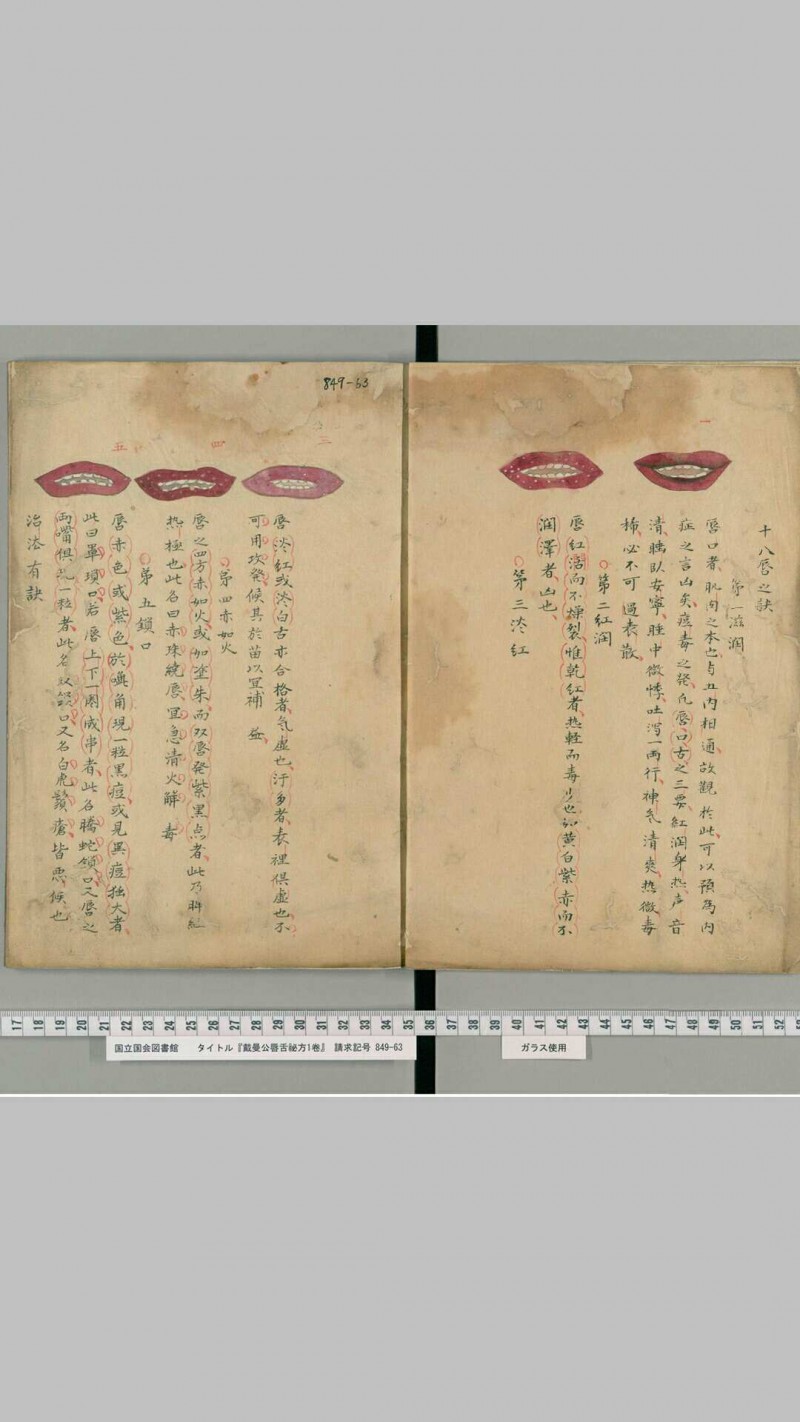 十八唇之訣
第一滋潤
唇口者肌肉之本也与五内相通故觀於此可以預為内
症之言凶矣痘毒之発凡唇口舌之三要紅潤身热声音
清睡臥安寧睡中微悸吐瀉一両行神気清爽热微毒
稀必不可過表散
第二紅潤
唇紅活而不燥裂惟乾紅者热軽而毒少也如黄白紫赤而不
潤澤者凶也
第三淡紅
一
三
四
五
849-63
唇淡紅或淡白舌亦合格者気虚也汗多者表裡倶虚也不
可用攻発候其於苗以宜補益
第四赤如火
唇之四方赤如火或如塗朱而双唇発紫黒点者此乃
热極也此名曰赤珠繞唇宜急清火解毒
第五鎖口
唇赤色或紫色於嘴角現一粒黒痘或見異痘独大者
此曰單項口若唇上下一圏成串者此名騰蛇鎖口又唇之
両嘴倶一粒者此名双鎖口又名白虎鬚瘡皆悪候也
治法有訣
17 18 19 20 21 22 23 24 25 26 27 28 29 30 31 32 33 34 35 36 37 38 39 40 41 42 43 44 45 46 47 48 49 50 51 52 53
国立国会図書館 タイトル『戴曼公唇舌祕方1巻』 請求記号 849-63
ガラス使用